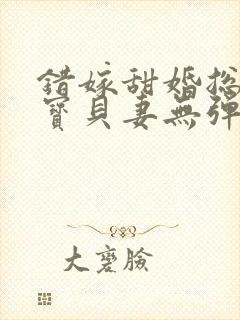 錯嫁甜婚總
寶貝妻無彈
大臉